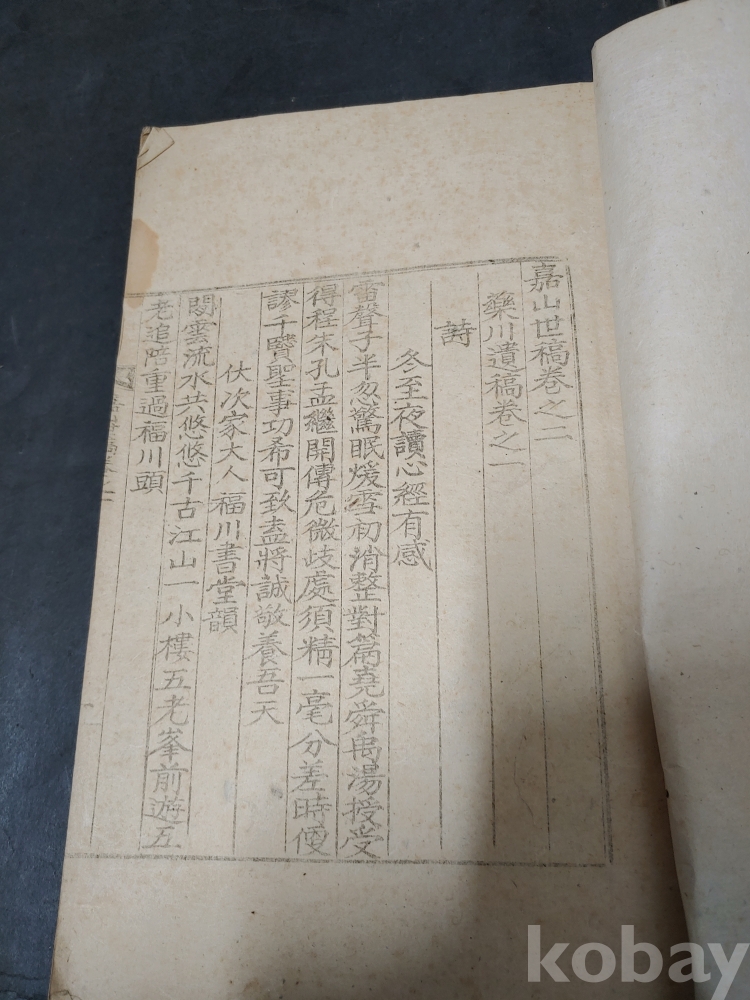 嘉山世稿卷之二
藥川遺稿卷之一
詩
冬至夜讀心經有感
雷聲子半忽驚眠煖雪初消整對篇堯舜禹湯授受
得程朱孔孟繼開傳危微歧處須精一毫分差時便
謬千賢聖事功希可致盍將誠敬養吾天
伏次家大人福川書堂韻
閒雲流水共悠悠千古江山一小樓五老峯前遊五
老追陪重過福川頭
kobay